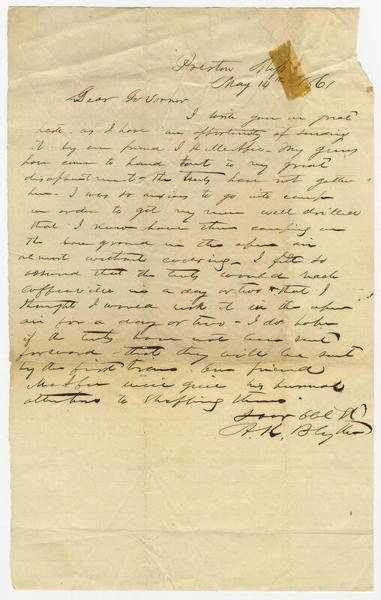 Preston Miss
May 14th 1861
Dear Governor
I write you in great
haste, as I have an opportunity of sending
it by our friend J H McAfee. My guns
have come to hand but to my great
disapointment the tents have not gotten
here. I was so anxious to go into camp
in order to get my men well drilled
that I now have them camping on
the bare ground in the open air
almost without covering. I felt so
assured that the tents would reach
Coffeeville in a day or two & that I
thought I would risk it in the open
air for a day or two - I do hope
if the tents have not been sent
foreward - that they will be sent
by the first train. Our friend
McAfee will give his personal
attention to shipping them.
Your Obt St
A. K. Blythe